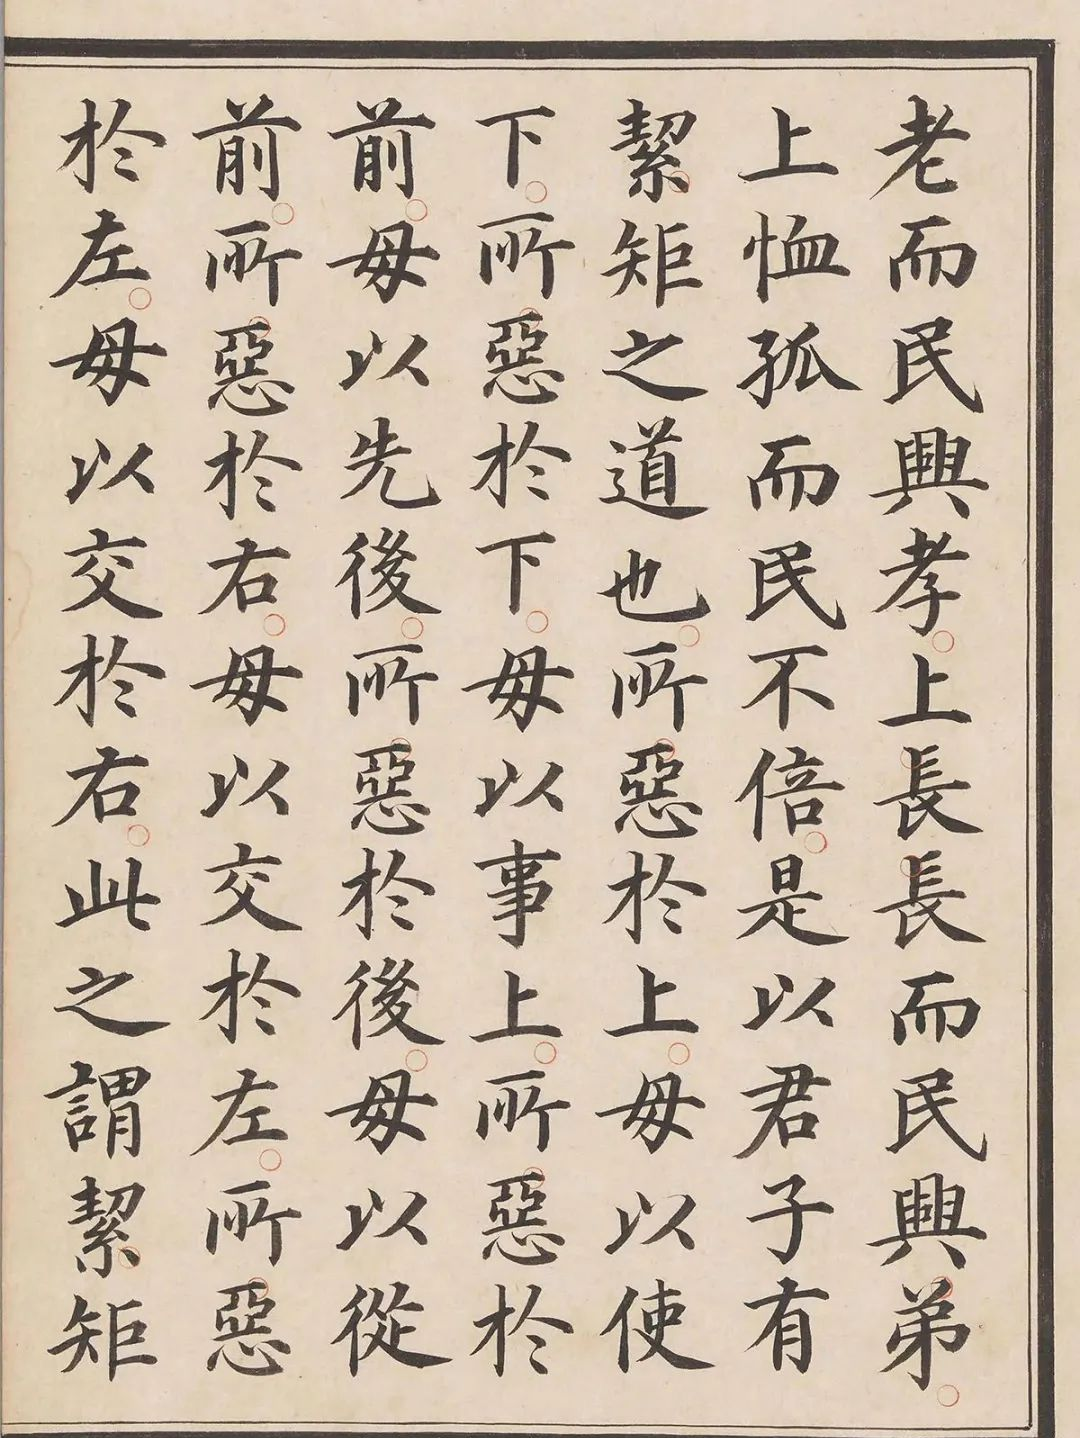 老而民興孝上長長而民興弟
上恤孤而民不倍是以君子有
絜矩之道也所惡於上毋以使
下所惡於下毋以事上所惡於
前毋以先後所惡於後毋以從
前所惡於右毋以交於左所惡
於左毋以交於右此之謂絜矩